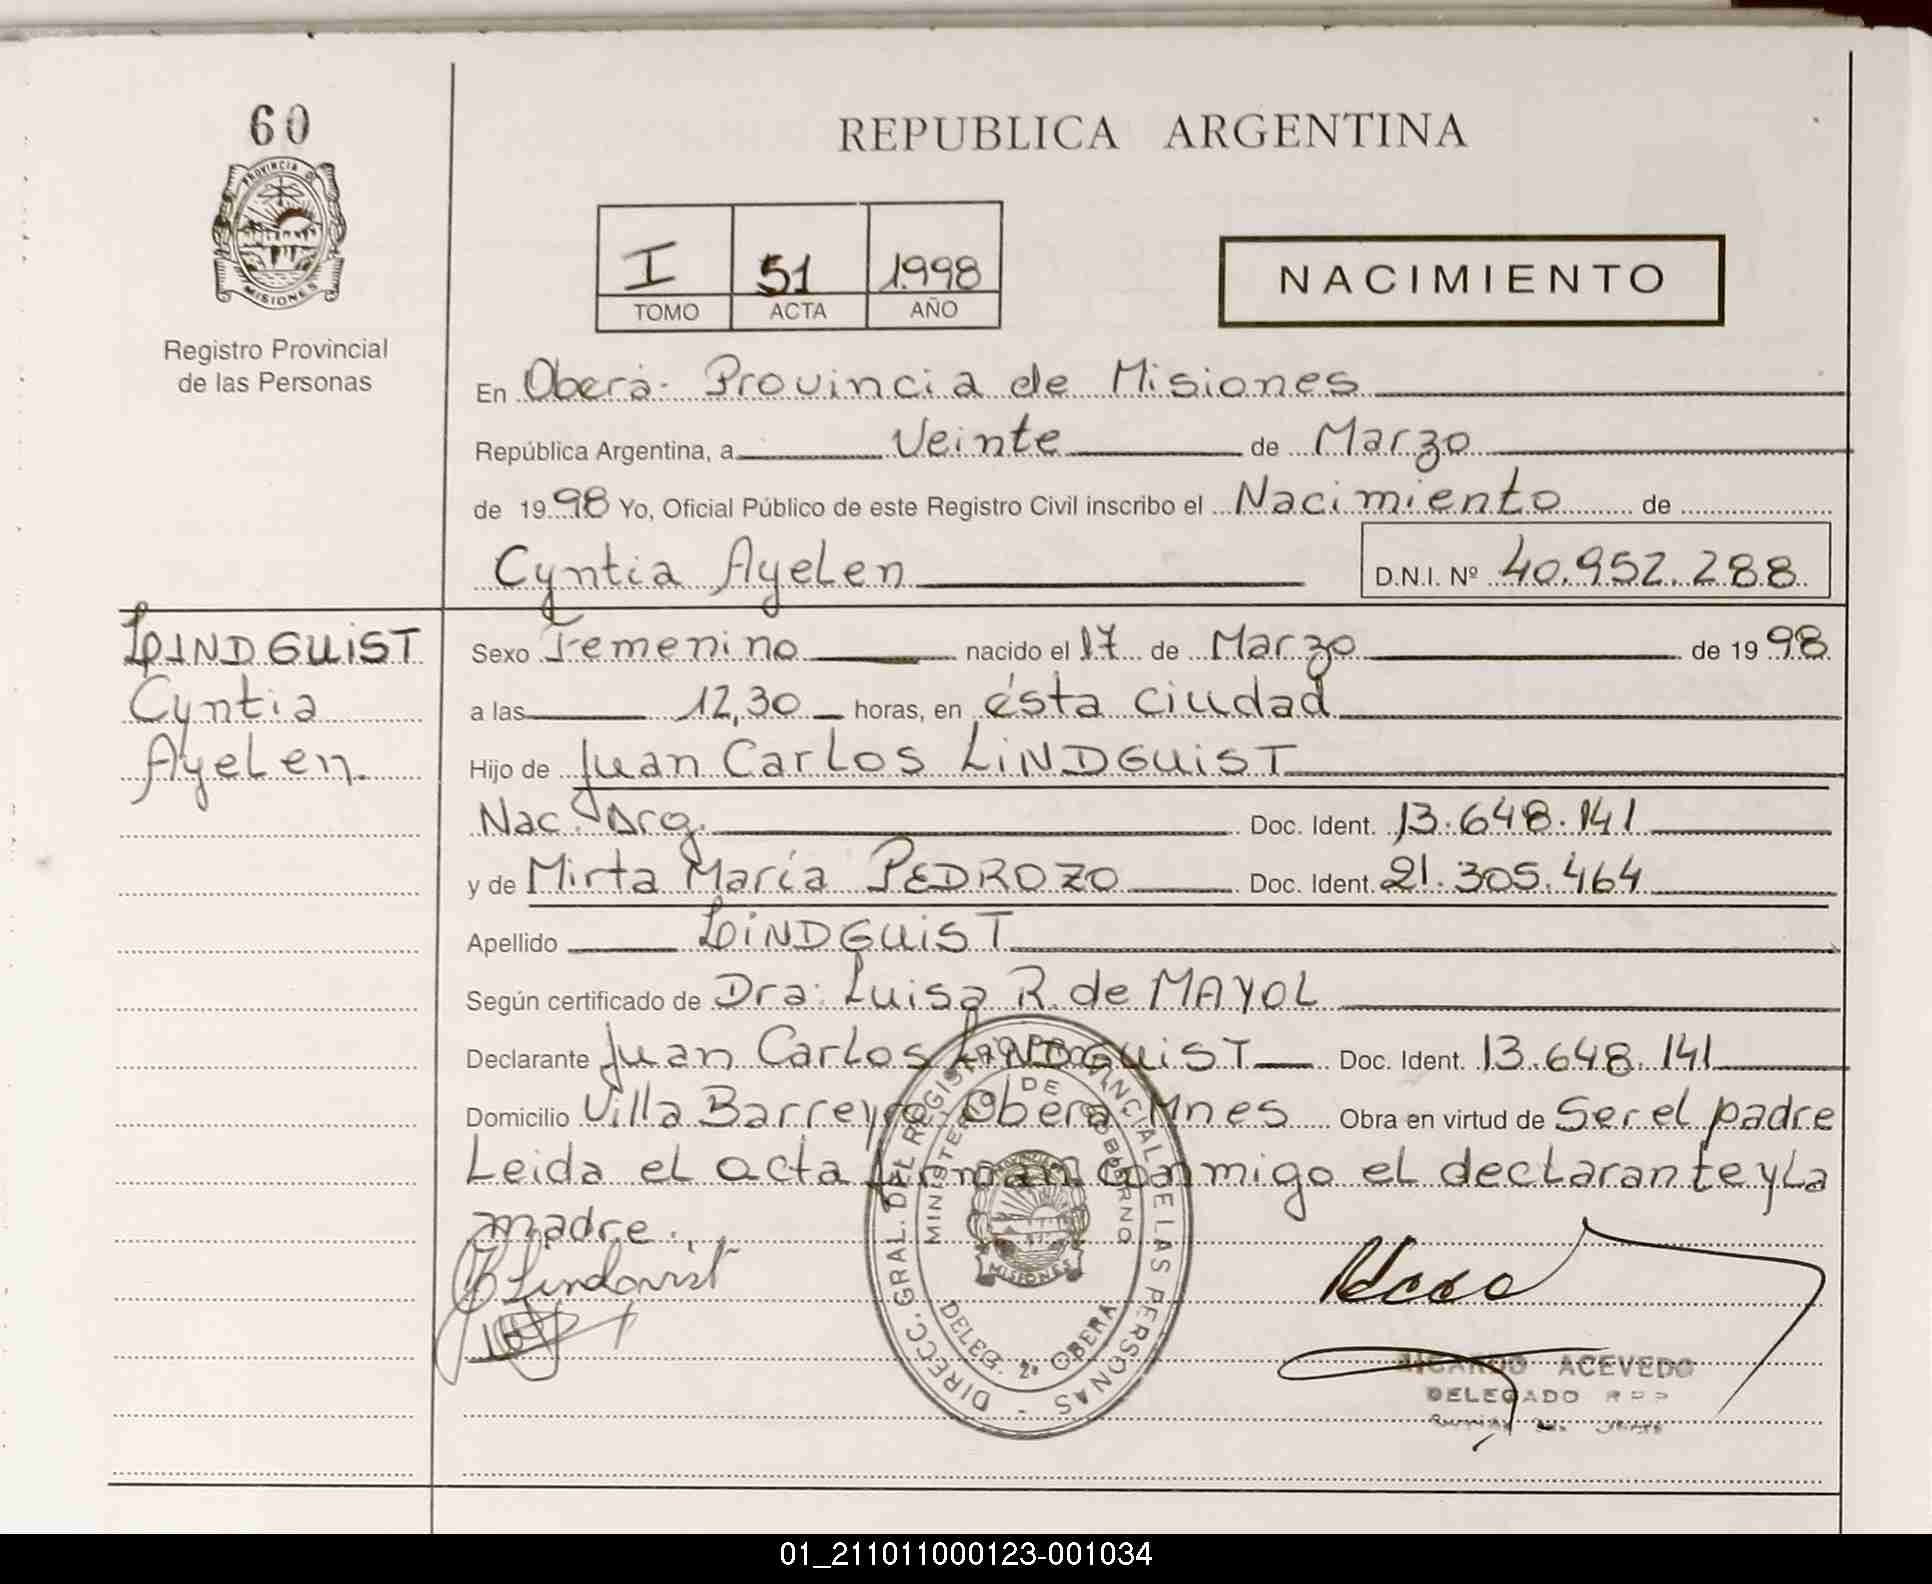 60
PROVINCIA DE
MISIONES
Registro Provincial
de las Personas
REPUBLICA ARGENTINA
I 51 1998
TOMO ACTA AÑO
NACIMIENTO
En Oberá- Provincia de Misiones
República Argentina, a Veinte de Marzo
de 1998 Yo, Oficial Público de este Registro Civil inscribo el Nacimiento de
Cyntia Ayelen D.N.I. Nº 40.952.288
LINDGUIST
Cyntia
Ayelen.
Sexo Femenino nacido el 17 de Marzo de 1998
a las 12,30 horas, en ésta ciudad
Hijo de Juan Carlos LINDGUIST
Nac. Arg. Doc. Ident. 13.648.141
y de Mirta María PEDROZO Doc. Ident. 21.305.464
Apellido LINDGUIST
Según certificado de Dra: Luisa R. de MAYOL
Declarante Juan Carlos LINDGUIST Doc. Ident. 13.648.141
Domicilio Villa Barreyro Oberá Mnes Obra en virtud de Ser el padre
Leida el acta firman conmigo el declarante y la
madre.
Lindqvist
DIRECC. GRAL. DEL REGISTRO PROVINCIAL DE LAS PERSONAS -
MINISTERIO DE GOBIERNO
MISIONES
DELEG. 2ª OBERA
RICARDO ACEVEDO
DELEGADO R P P
01_211011000123-001034